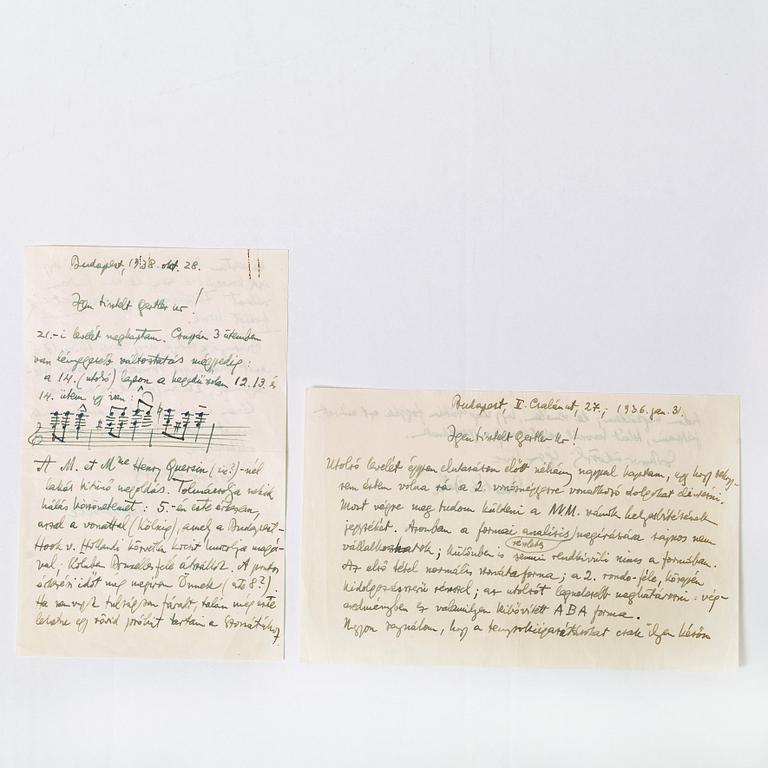 Budapest, 1938. okt. 28.
Igen tisztelt Gertler úr!
21.-i levelét megkaptam. Csupán 3 ütemben
van lényegesebb változtatás mégpedig:
a 14. (utolsó) lapon a hegedűszólam 12. 13. és
14. ütem így van:
A M. et Mme Henry Quersin (is?)-nél
lakás kitünő megoldás. Tolmácsolja nekik
hálás köszönetemet: 5.-én este érkezem,
azzal a vonattal (Kölnig), amely a Budapest-
Hoek v. Holland közvetlen kocsit hurcolja magá-
val; Kölnben Bruxelles felé átszállok. A pontos
érkezési időt meg írom Önnek (
Ha nem vagyok tulságosan fáradt, talán még este
lehetne egy rövid próbát tartani a szonátához
Budapest, II. Csalán út, 27.; 1936. jan. 31.
Igen tisztelt Gertler Ur!
Utolsó levelét éppen elutazásom előtt néhány nappal kaptam, úgy hogy
érkezésem volna rá a 2. vonósnégyesre vonatkozó dolgokat átnézni.
Most végre meg tudom küldeni a N.K.M. számok helyesbítésének
jegyzékét. Azonban a formai analízis megírására sajnos nem
vállalkozhatok; különben is részletes semmi rendkívüli nincs a formában.
Az első tétel normális szonátaforma; a 2. rondo-féle, közepén
kidolgozásszerű résszel; az utolsót legnehezebb meghatározni: vég-
eredményben ez valamilyen kibővített ABA forma.
Nagyon sajnálom, hogy a csak ilyen későn